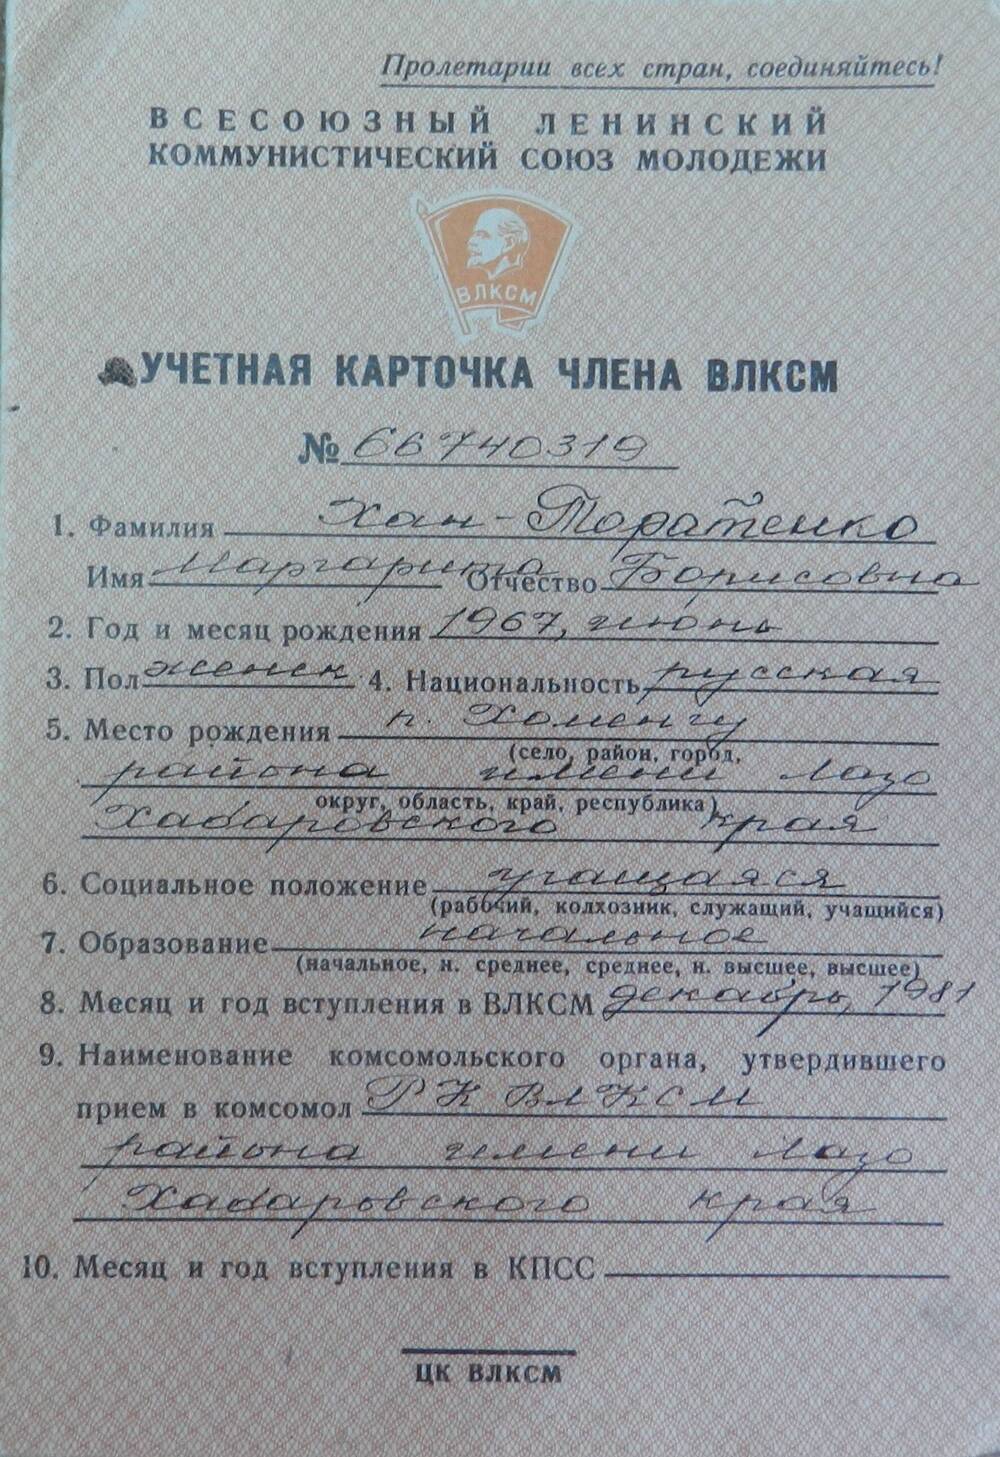 Пролетарии всех стран, соединяйтесь!
ВСЕСОЮЗНЫЙ ЛЕНИНСКИЙ
КОММУНИСТИЧЕСКИЙ СОЮЗ МОЛОДЕЖИ
ВЛКСМ
УЧЕТНАЯ КАРТОЧКА ЧЛЕНА ВЛКСМ
№ 66740319
1. Фамилия Хан-
Имя Маргарита Отчество Борисовна
2. Год и месяц рождения 1967, июнь
3. Пол женск 4. Национальность русская
5. Место рождения п.
(село, район, город,
района имени Лазо
округ, область, край, республика)
Хабаровского края
6. Социальное положение учащаяся
(рабочий, колхозник, служащий, учащийся)
7. Образование начальное
(начальное, н. среднее, среднее, н. высшее, высшее)
8. Месяц и год вступления в ВЛКСМ декабрь, 1981
9. Наименование комсомольского органа, утвердившего
прием в комсомол РК ВЛКСМ
района имени Лазо
Хабаровского края
10. Месяц и год вступления в КПСС
ЦК ВЛКСМ